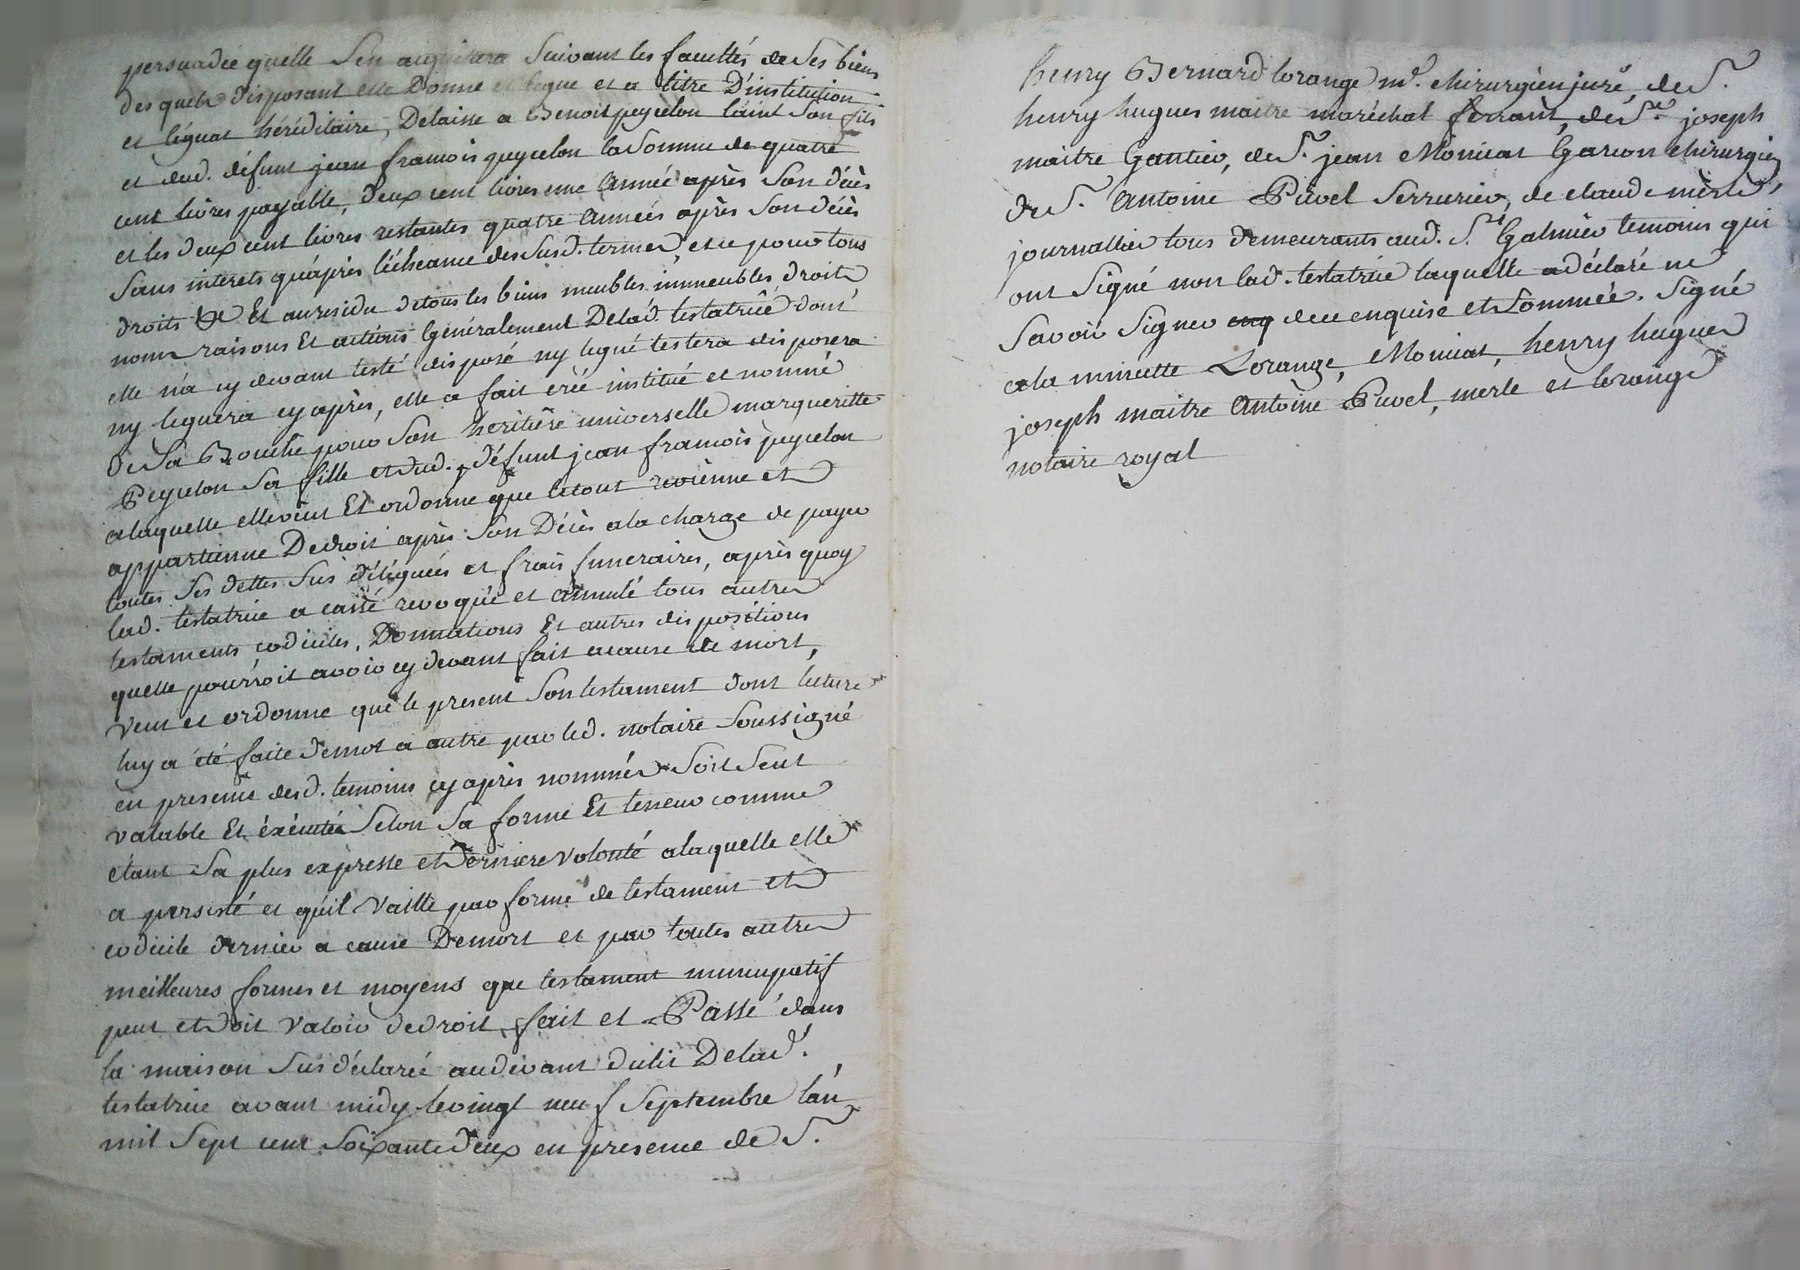 persuadée quelle Sen acquittera Suivant les facultés de Ses biens
desquels disposant elle Donne et legue et a titre D'institution
et légnat héréditaire, Délaisse a Benoit peycelon láint Son fils
et dud. défunt jean francois peycelon la Somme de quatre
cent livres payable, deux cent livres une Année après Son décès
et les deux cent livres restantes quatre Années après Son décès
Sans interets qu'après l'écheance des Susd. termes, et ce pour tous
droits &c Et au residu de tous les biens meubles, immeubles, droits
noms raisons Et actions Généralement De lad. testatrice dont
elle n'a cy devant testé disposé ny legué testera disposera
ny leguera cy après, elle a fait créé institué et nommé
de Sa Bouche pour Son héritière universelle margueritte
Peycelon Sa fille et dud. défunt jean francois peycelon
a laquelle elle veut Et ordonne que le tout revienne et
appartienne De droit après Son Décès a la charge de payer
toutes Ses dettes Sus déléguées et frais funeraires, après quoy
lad. testatrice a cassé revoqué et annulé tous autres
testaments, codiciles, Donnations Et autres dispositions
quelle pourroit avoir cy devant fait a cause de mort,
veut et ordonne que le present Son testament dont lecture
luy a été faite de mot a autre par led. notaire Soussigné
en presence desd. temoins cy après nommés Soit Seul
valable Et éxécutée Selon Sa forme Et teneur comme
etant Sa plus expresse et Derniere volonté a laquelle elle
a persisté et qu'il vaille par forme de testament et
codicile dernier a cause De mort et par toutes autres
meilleures formes et moyens que testament nuncupatif
peut et doit valoir de droit, fait et Passé dans
la maison Sus déclarée au devant du lit De lad.
testatrice avant midy le vingt neuf Septembre l'an
mil Sept cent Soixante deux en presence de S.
henry Bernard lorange md. chirurgien juré, de S.
henry hugues maitre maréchal ferrant, de Sr. joseph
maitre Gantier, de S. jean Monicat Garçon chirurgien
de S. Antoine Puvel Serrurier, de claude merle
journallier tous demeurants aud. St Galmier temoins qui
ont Signé non lad. testatrice laquelle a déclaré ne
Savoir Signer enq de ce enquise et Sommée. Signé
a la minutte Lorange, Monicat, henry hugues
joseph maitre Antoine Puvel, merle et lorange
notaire royal